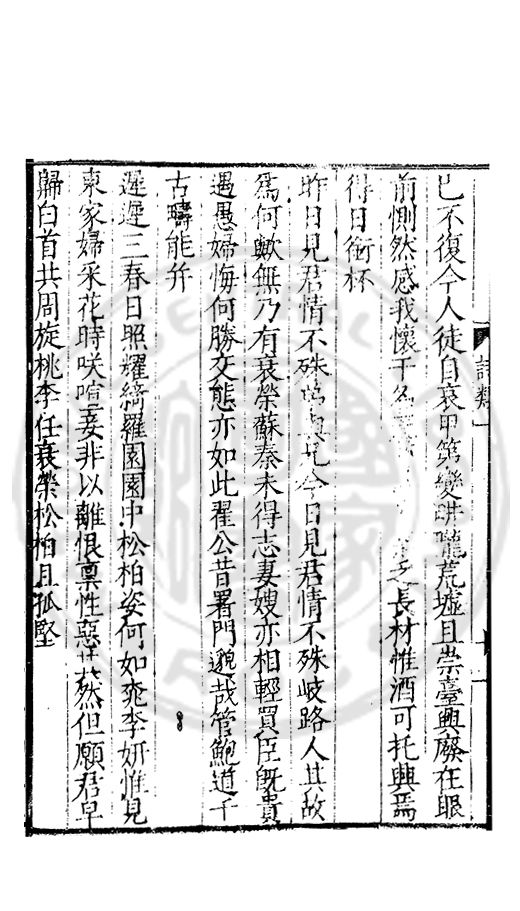 已不復令人徒自哀甲第變畊隴荒墟且崇臺興廢在眼
前惻然感我懷干名 長材惟酒可托興焉
得日銜杯
昨日見君情不殊 兄今日見君情不殊岐路人其故
爲何歟無乃有衰榮蘇秦未得志妻嫂亦相輕買臣旣貴
遇愚婦悔何勝交態亦如此翟公昔署門邈哉管鮑道千
古疇能幷
遲遲三春日照耀綺羅園園中松柏姿何如桃李妍惟見
東家婦采花時咲喧妾非以離恨禀性惡 然但願君早
歸白首共周旋桃李任衰榮松柏且孤堅
詩類